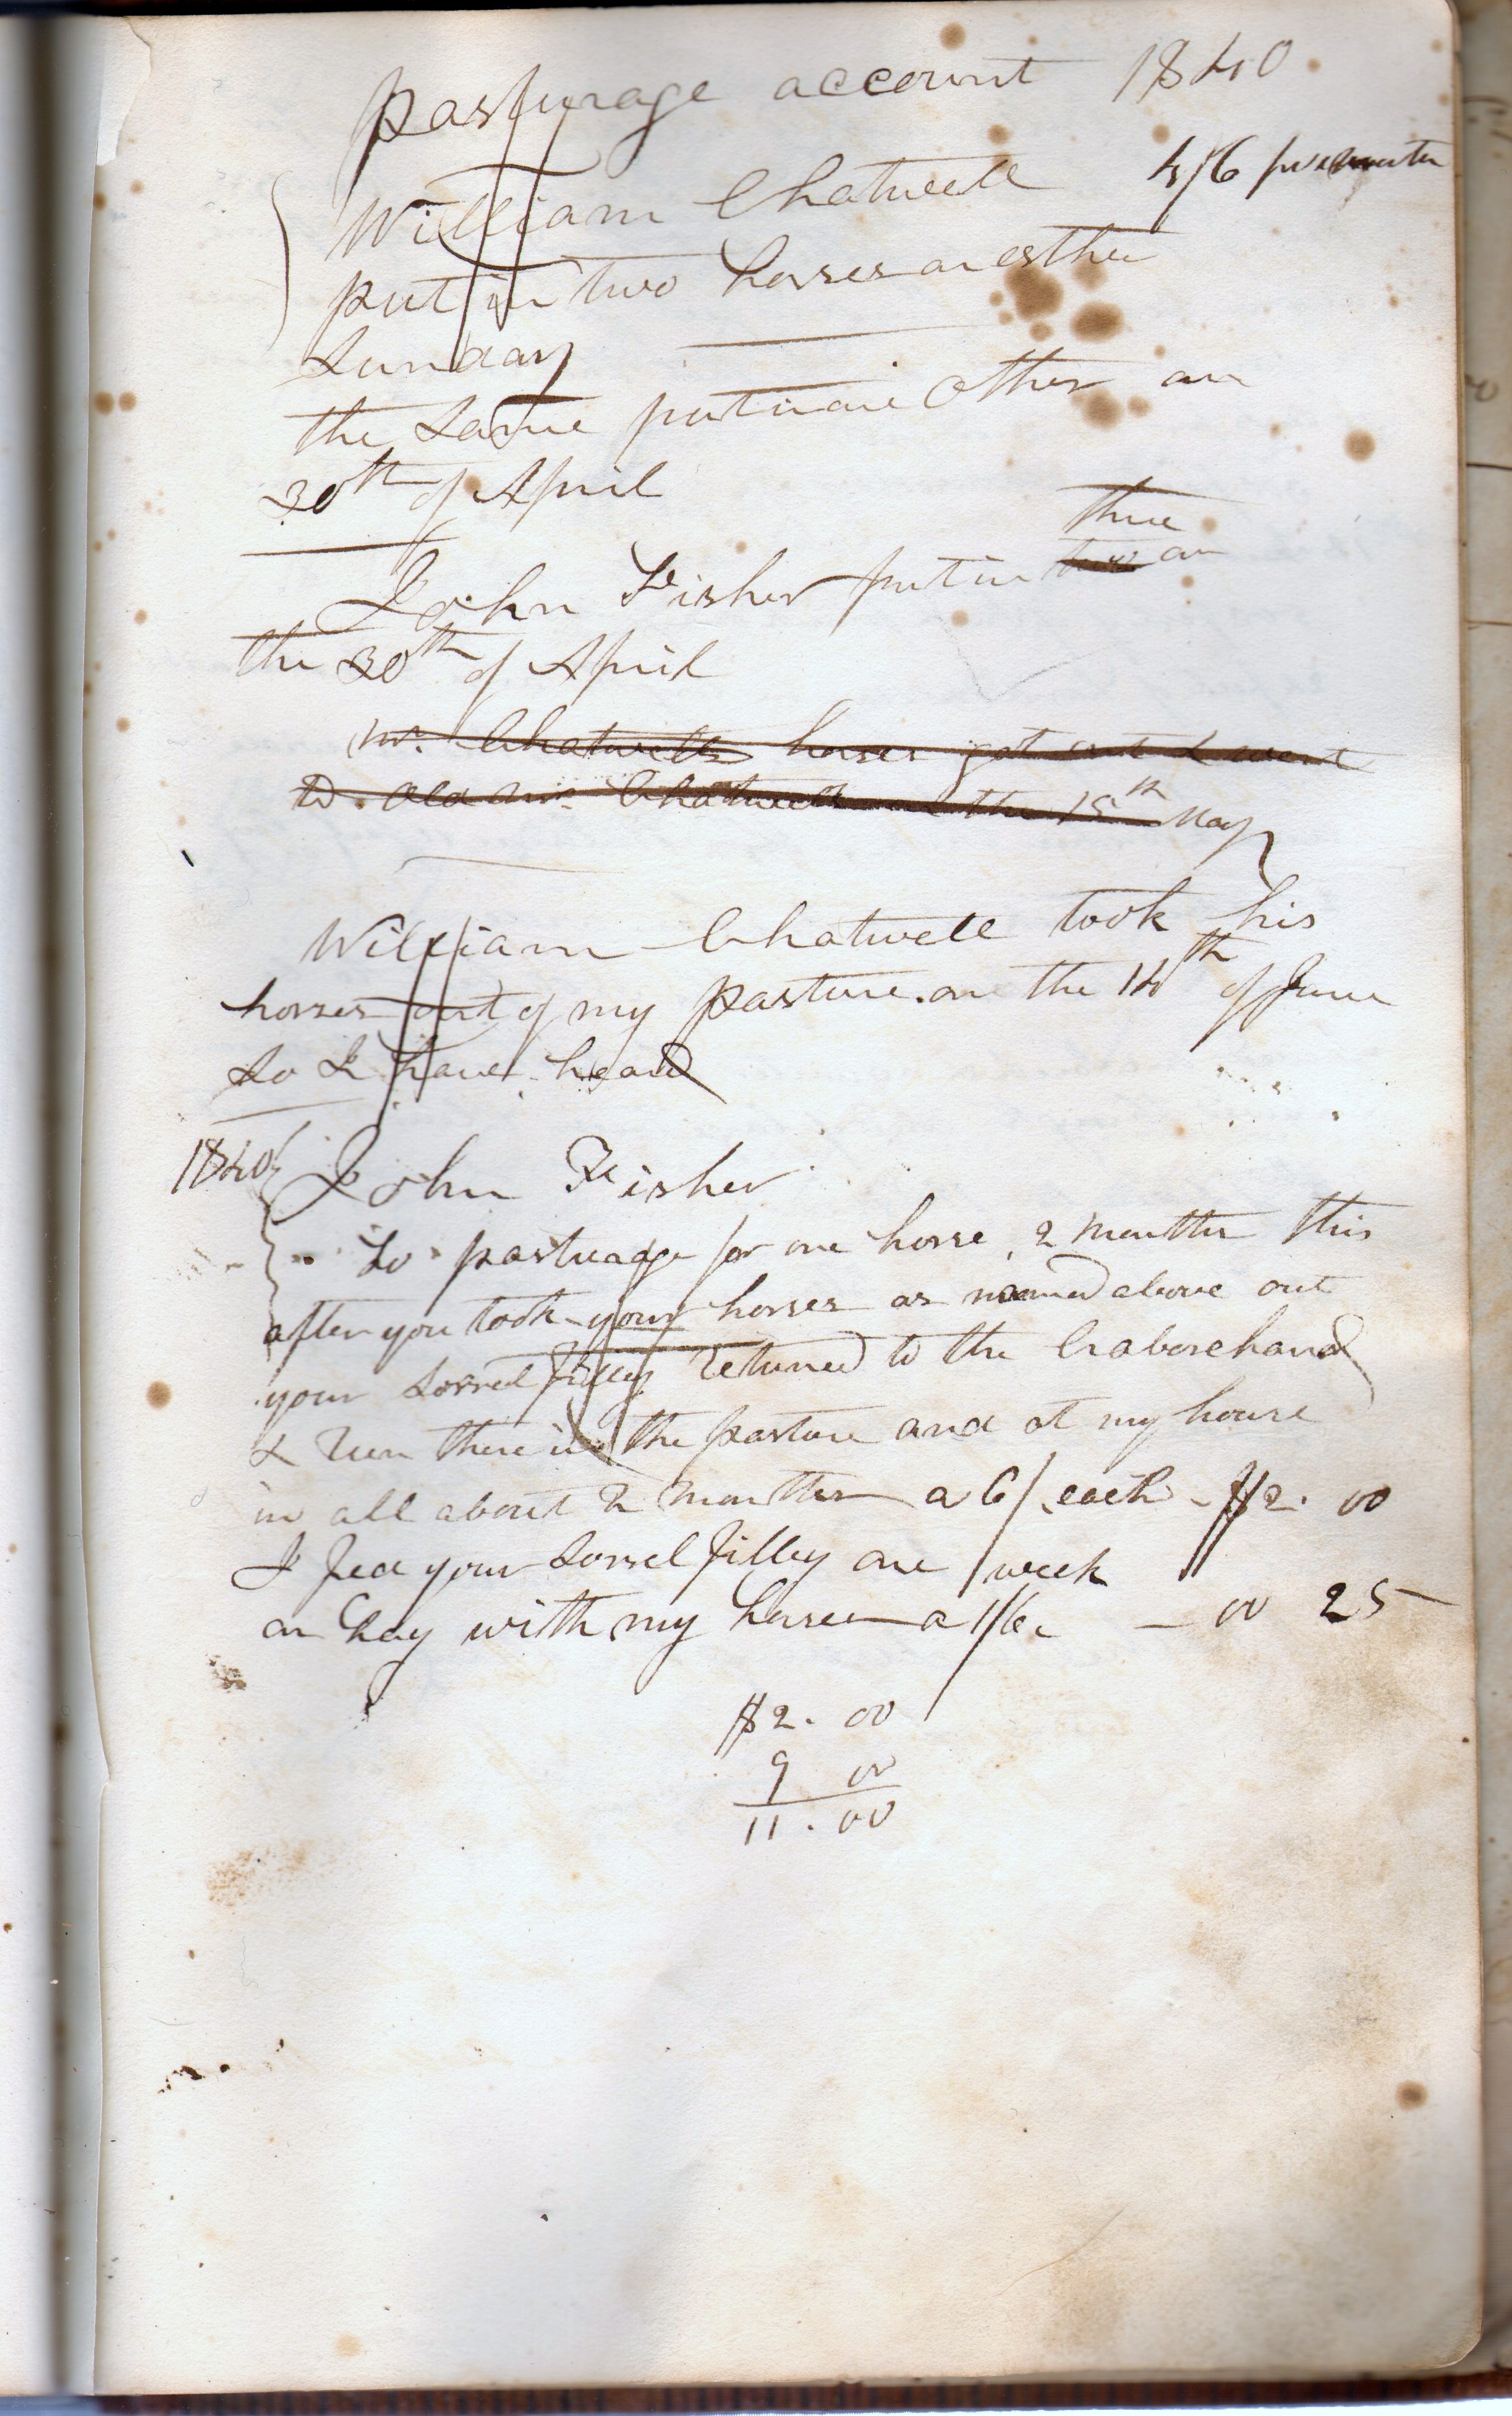 Pasturage account 1840
William Chatwell 4/6 per month
put in two horses on esther
Sunday
the same put in one other on
30th of April
three
John Fisher put in two on
the 30th of April
Mr. Chatwells horses got out & went
to old Mr. Chatwells on the 15th May
William Chatwell took his
horses out of my pasture on the 14th of June
so I have heard
1840 John Fisher
to pasturage for one horse, 2 months this
after you took your horses as named above out
your sorrel filley returned to the
& run there in the pasture and at my house
in all about 2 months a 6/ each - $2. 00
I fed your sorrel filley one week
on hay with my horses a 1/6. - 00 25
$2. 00
9 00
11. 00